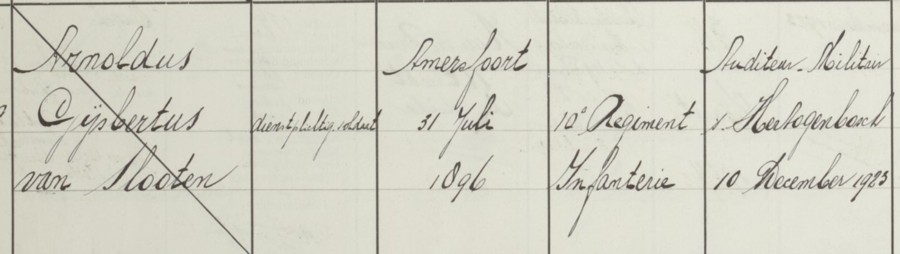 Arnoldus
Gijsbertus
van Slooten
dienstplichtig soldaat
Amersfoort
31 Juli
1896
10e Regiment
Infanterie
Auditeur-Militair
's Hertogenbosch
10 December 1923